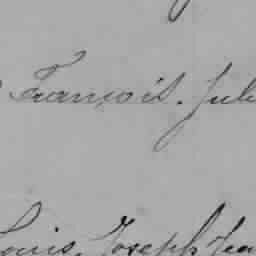 François. Jule
Louis, Joseph Fran